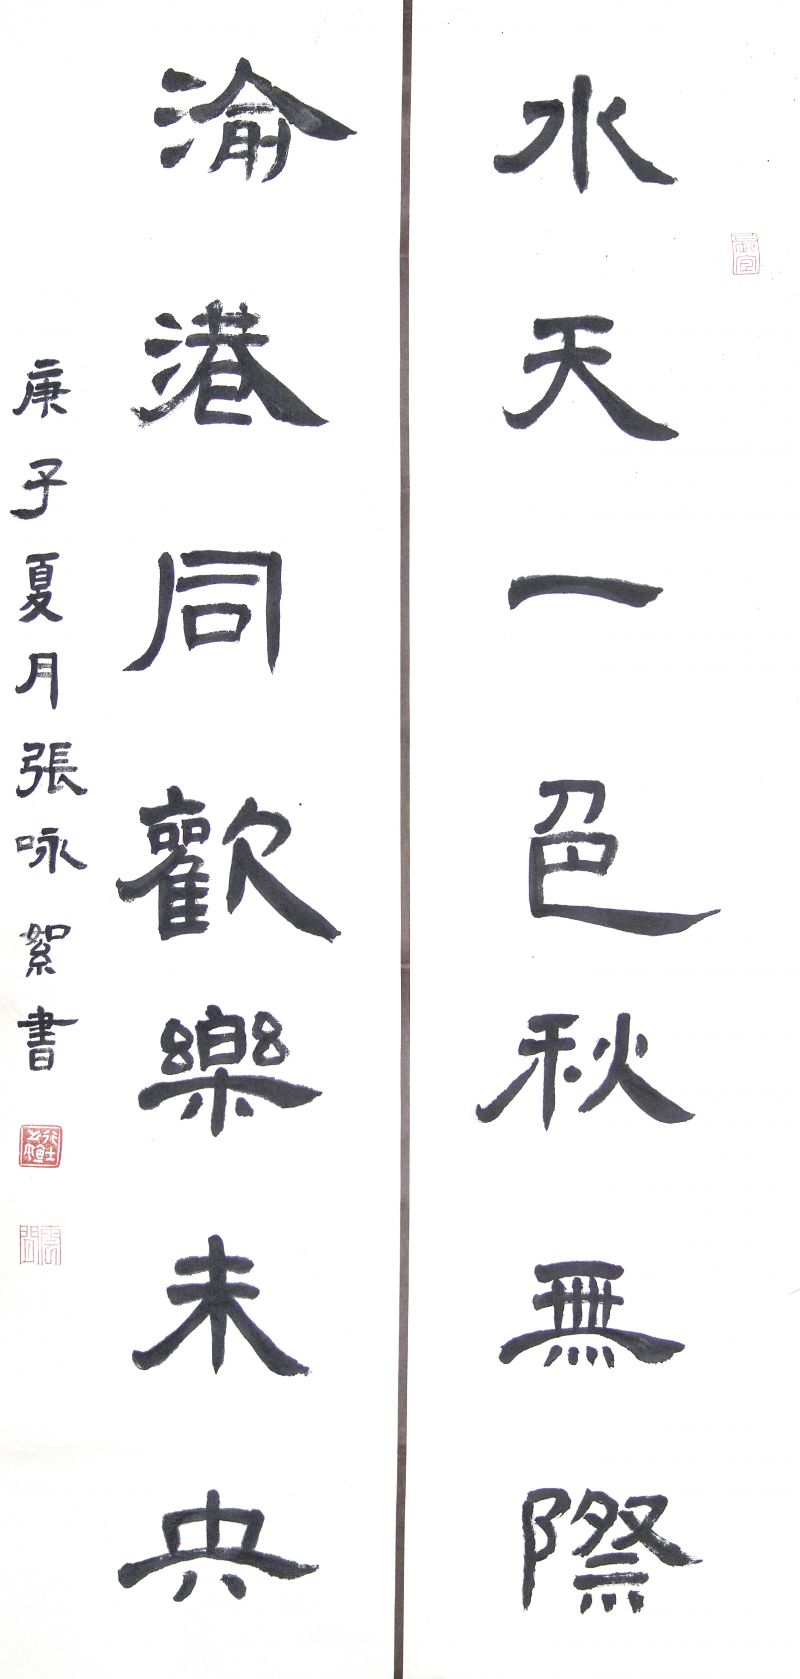 水天一色秋無際
渝港同歡樂未央
庚子夏月張咏絮書